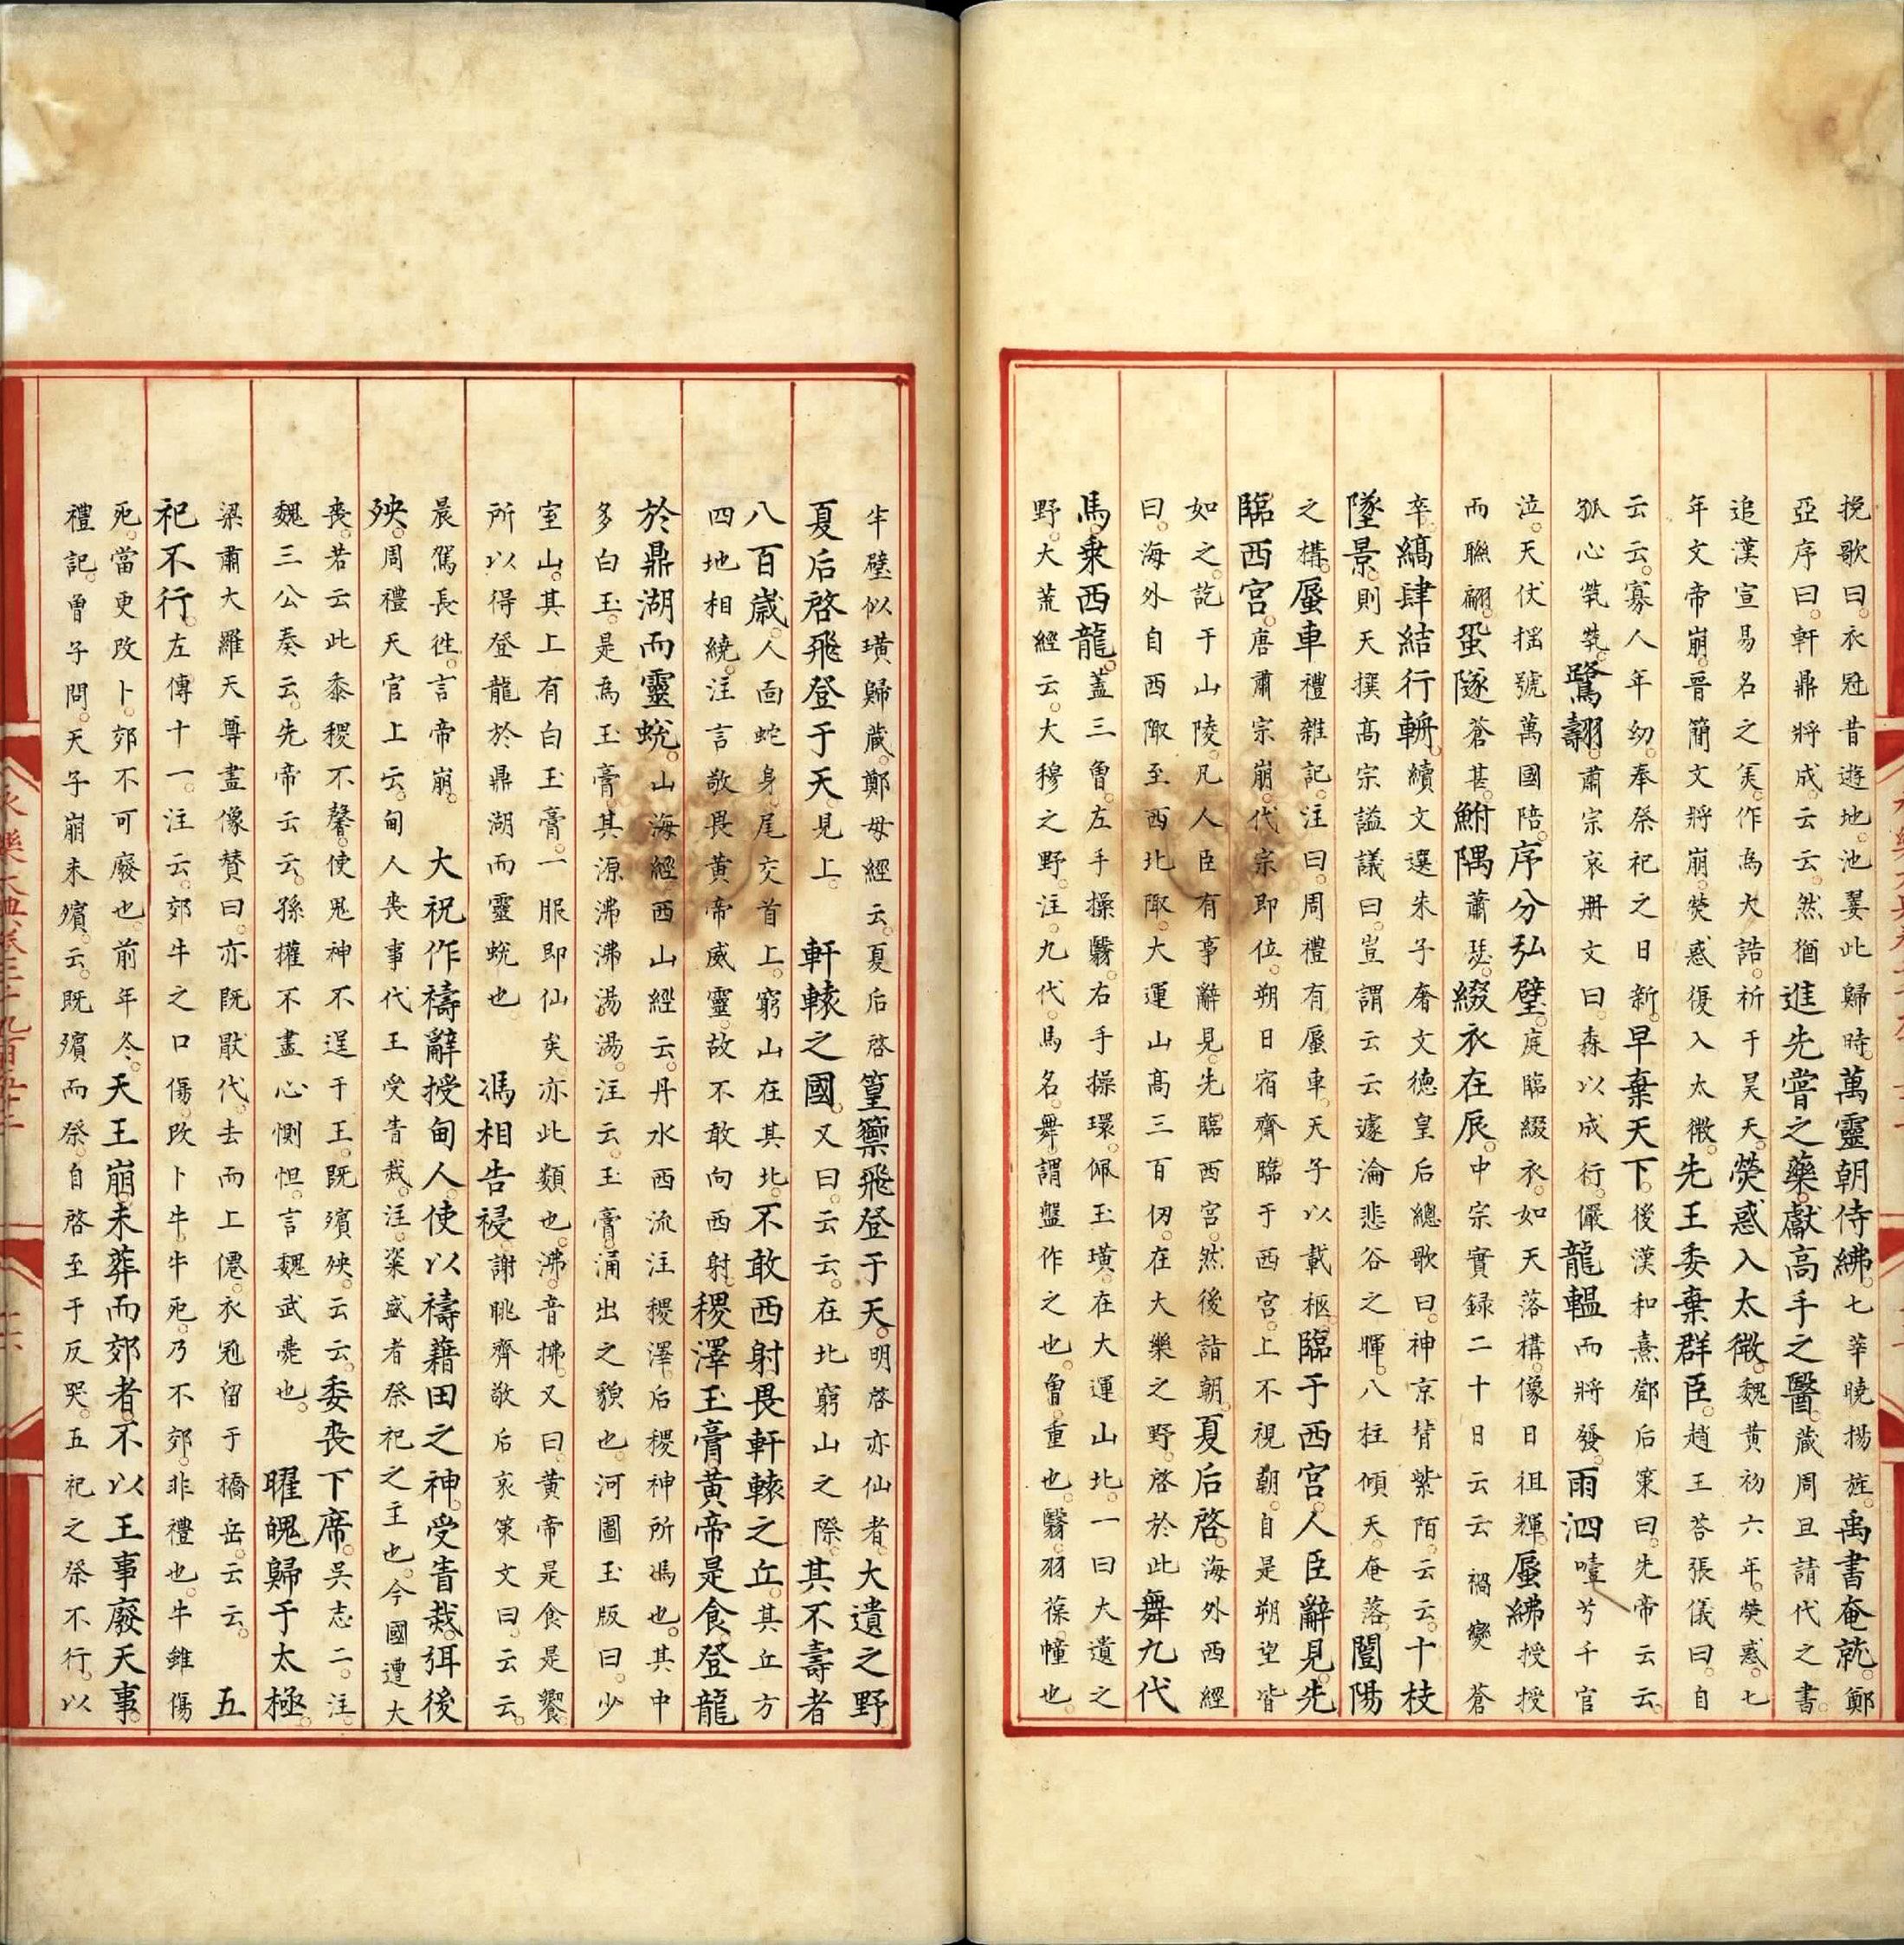 挽歌曰衣冠昔遊地池翣此歸時萬靈朝侍紼七莘曉揚旌禹書奄就鄭
亞序曰軒鼎將成云云然猶進先嘗之藥獻高手之醫蔵周旦請代之書
追漢宣易名之美作為大誥祈于昊天熒惑入太微魏黃初六年熒惑七
年文帝崩晉簡文將崩熒惑復入太微先王委棄群臣趙王荅張儀曰自
云云寡人年幼奉祭祀之日新早棄天下後漢和熹鄧后策曰先帝云云
孤心煢煢鷺翿肅宗哀册文曰森以成行儼龍轀而將發雨泗噎兮千官
泣天伏揺號萬國陪序分弘璧庭臨綴衣如天落構像日徂輝蜃紼授授
而聯翩蛩隧蒼甚鮒隅蕭瑟綴衣在扆中宗實録二十日云云禍變蒼
卒縞肆結行軿續文選朱子奢文德皇后總歌曰神京背紫陌云云十枝
墜景則天撰高宗謚議曰豈謂云云遽淪悲谷之暉八柱傾天奄落閶陽
之構蜃車禮雜記注曰周禮有蜃車天子以載柩臨于西宮人臣辭見先
臨西宮唐肅宗崩代宗即位朔日宿齋臨于西宮上不視朝自是朔望皆
如之訖于山陵凡人臣有事辭見先臨西宮然後詣朝夏后啓海外西經
曰海外自西陬至西北陬大運山高三百仞在大樂之野啓於此舞九代
馬乘西龍蓋三曾左手操翳右手操環佩玉璜在大運山北一曰大遺之
野大荒經云大穆之野注九代馬名舞謂盤作之也曾重也翳羽葆幢也
半璧似璜歸蔵鄭母經云夏后啓篁籞飛登于天明啓亦仙者大遺之野
夏后啓飛登于天見上 軒轅之國又曰云云在北窮山之際其不壽者
八百歲人面蛇身尾交首上窮山在其北不敢西射畏軒轅之丘其丘方
四地相繞注言敬畏黃帝威靈故不敢向西射稷澤玉膏黃帝是食登龍
於鼎湖而靈蛻山海經西山經云丹水西流注稷澤后稷神所馮也其中
多白玉是為玉膏其源沸沸湯湯注云玉膏涌出之貌也河圖玉版曰少
室山其上有白玉膏一服即仙矣亦此類也沸音拂又曰黃帝是食是饗
所以得登龍於鼎湖而靈蛻也 馮相告祲謝眺齊敬后哀策文曰云云
晨駕長徃言帝崩 大祝作禱辭授甸人使以禱藉田之神受眚烖弭後
殃周禮天官上云甸人喪事代王受眚烖注粢盛者祭祀之主也今國遭大
喪若云此黍稷不馨使鬼神不逞于王既殯殃云云委喪下席吳志二注
魏三公奏云先帝云云孫權不盡心惻怛言魏武薨也 曜魄歸于太極
梁肅大羅天尊畫像賛曰亦既猒代去而上僊衣冠留于橋岳云云 五
祀不行左傳十一注云郊牛之口傷改卜牛牛死乃不郊非禮也牛雖傷
死當更改卜郊不可廢也前年冬天王崩未葬而郊者不以王事廢天事
禮記曾子問天子崩未殯云既殯而祭自啓至于反哭五祀之祭不行以